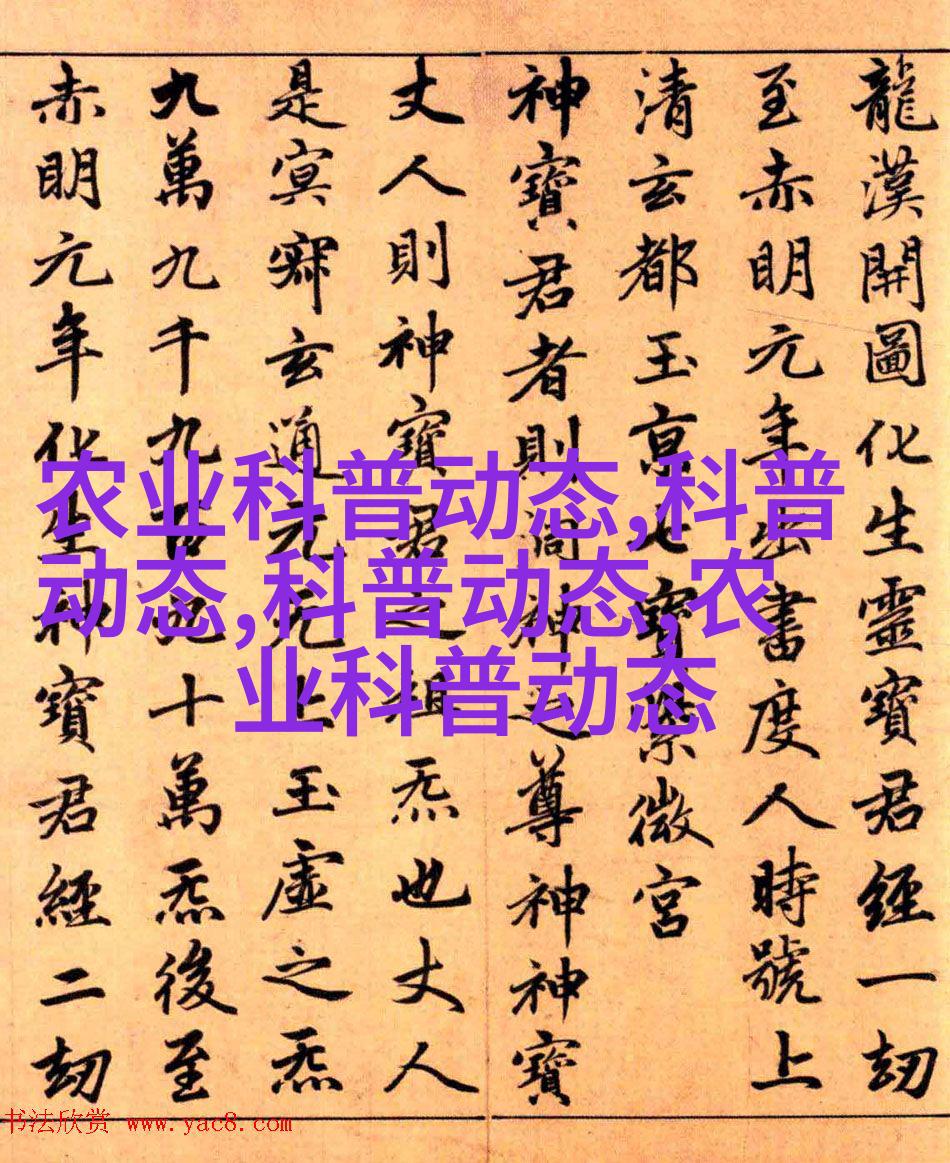 龍漢開圖化生靈寶君經一劫
至赤明元年出書度人時號上
清玄都玉京七寶紫微宮
神寶君者則洞神之尊神神寶
丈人則神寶君之祖炁也丈人
是冥寂玄通元无上玉虛之炁
九萬九千九百九十萬炁後至
赤明元年化生神寶君經二劫
农业科普动态,科普
动态,科普动态,农
业科普动态
书法欣赏 www.yac8.com